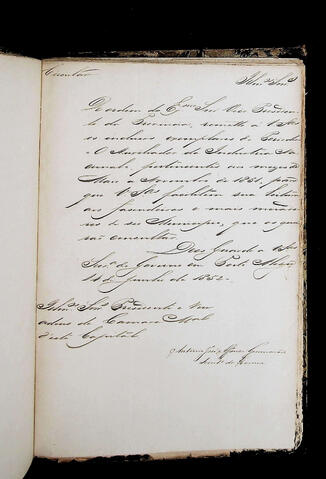 Circular
Illmos Snrs
De ordem do Exmo Snr Vice Presidente
da Provincia, remetto a VSas
os inclusos exemplares do Periodico
O Auxiliador da Industria Nacional
pertencentes aos mezes de
Maio a Novembro de 1851, para
que VSas facilitem sua leitura
aos fazendeiros e mais
de seu Municipio, que a quizerem
consultar.
Deos Guarde a VSas
Secra do Governo em Porto Alegre
14 de Junho de 1852.
Illmos Snrs Presidente e Vereadores
da Camara Mal
desta Capital
Antonio José Guimarães